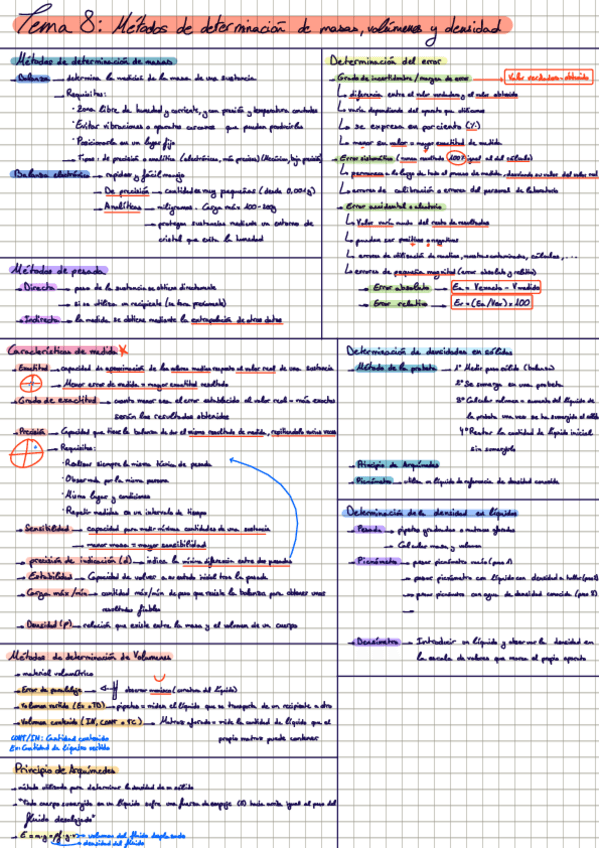 Tema 8: Métodos de determinación de masas, volúmenes y densidad
Métodos de determinación de masas
Balanza → determina la medición de la masa de una sustancia
→ Requisitos:
· Zona libre de humedad y corriente, y con presión y temperatura constantes
· Evitar vibraciones o aparatos cercanos que puedan producirlas
· Posicionarla en un lugar fijo
→ Tipos: de precisión o analítica (electrónicas, más precisas)
Balanza electrónica → rápidas y fácil manejo
→ De precisión → cantidades muy pequeñas (desde 0,001g)
→ Analíticas → miligramos. Carga máx 100-200g
→ protegen sustancias mediante un entorno de
cristal que evita la humedad
Métodos de pesada
→ Directa → peso de la sustancia se obtiene directamente
→ si se utiliza un recipiente (se tara previamente)
→ Indirecta → la medida se obtiene mediante la extrapolación de otros datos
Características de medida
→ Exactitud → capacidad de aproximación de los valores medidos respecto al valor real de una sustancia
→ Menor error de medida = mayor exactitud resultado
→ Grado de exactitud → cuanto menor sea el error establecido al valor real → más exactos
serán los resultados obtenidos
→ Precisión → Capacidad que tiene la balanza de dar el mismo resultado de medida, repitiéndolo varias veces
→ Requisitos:
· Realizar siempre la misma técnica de pesada
· Observada por la misma persona
· Mismo lugar y condiciones
· Repetir medidas en un intervalo de tiempo
→ Sensibilidad → capacidad para medir mínimas cantidades de una sustancia
→ menor masa = mayor sensibilidad
→ precisión de indicación (d) → indica la mínima diferencia entre dos pesadas
→ Estabilidad → Capacidad de volver a su estado inicial tras la pesada
→ Carga máx/mín → cantidad máx/mín de peso que resiste la balanza para obtener unos
resultados fiables
→ Densidad (ρ) → relación que existe entre la masa y el volumen de un cuerpo
Métodos de determinación de Volúmenes
→ material volumétrico
→ Error de paralaje → observar menisco (curvatura del líquido)
→ Volumen vertido (Ex = TD) → pipetas = miden el líquido que se transporta de un recipiente a otro
→ Volumen contenido (IN, CONT = TC) → Matraz aforado = mide la cantidad de líquido que el
propio matraz puede contener
CONT/IN: Cantidad contenida
Ex: Cantidad de líquido vertido
Principio de Arquímedes
→ método utilizado para determinar la densidad de un sólido
→ "Todo cuerpo sumergido en un líquido sufre una fuerza de empuje (E) hacia arriba igual al peso del
fluido desalojado"
→ volumen del fluido desplazado
→ densidad del fluido
Determinación del error
→ Grado de incertidumbre / margen de error → Valor verdadero - obtenido
↳ diferencia entre el valor verdadero y el valor obtenido
↳ varía dependiendo del aparato que utilicemos
↳ se expresa en porciento (%)
↳ menor su valor = mayor exactitud de medida
→ Error sistemático
↳ errores de calibración o errores del personal de laboratorio
→ Error accidental o aleatorio
↳ Valor varía mucho del resto de resultados
↳ pueden ser positivos o negativos
↳ errores de pequeña magnitud (error absoluto y relativo)
→ Error absoluto → Ea = Vexacto - Vmedido
→ Error relativo → Er = (Ea/Ver) × 100
Determinación de densidades en sólidos
→ Método de la probeta → 1º Medir peso sólido (balanza)
2º Se sumerge en una probeta
3º Calcular volumen = aumento del líquido de
la probeta una vez se ha sumergido el sólido
4º Restar la cantidad de líquido inicial
sin sumergirlo
→ Principio de Arquímedes
→ Picnómetro → utiliza un líquido de referencia de densidad conocida
Determinación de la densidad en líquidos
→ Pesada → pipetas graduadas o matraces aforados
→ Calcular masa y volumen
→ Picnómetro → pesar picnómetro vacío
→ pesar picnómetro con líquido con densidad a hallar
→ pesar picnómetro con agua de densidad conocida
→
→ Densímetro → Introducir un líquido y observar la densidad en
la escala de valores que marca el propio aparato